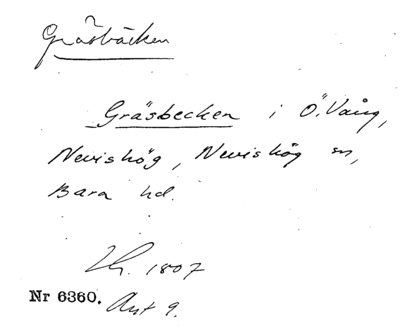 Gräsbäcken
Gräsbecken i Ö. Vång,
Nevishög, Nevishög sn,
Bara hd.
Lh. 1807
Nr 6360. Akt 9.